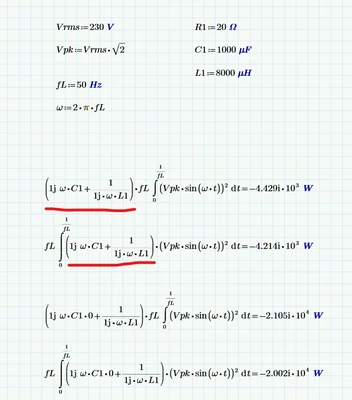 Vrms:=230 V
R1:=20 Ω
Vpk:=Vrms•√2
C1:=1000 μF
L1:=8000 μH
fL:=50 Hz
ω:=2•π•fL
(1j ω•C1+1/(1j•ω•L1))•fL ∫₀^(1/fL) (Vpk•sin(ω•t))² dt=-4.429i•10³ W
fL ∫₀^(1/fL) (1j ω•C1+1/(1j•ω•L1))•(Vpk•sin(ω•t))² dt=-4.214i•10³ W
(1j ω•C1•0+1/(1j•ω•L1))•fL ∫₀^(1/fL) (Vpk•sin(ω•t))² dt=-2.105i•10⁴ W
fL ∫₀^(1/fL) (1j ω•C1•0+1/(1j•ω•L1))•(Vpk•sin(ω•t))² dt=-2.002i•10⁴ W